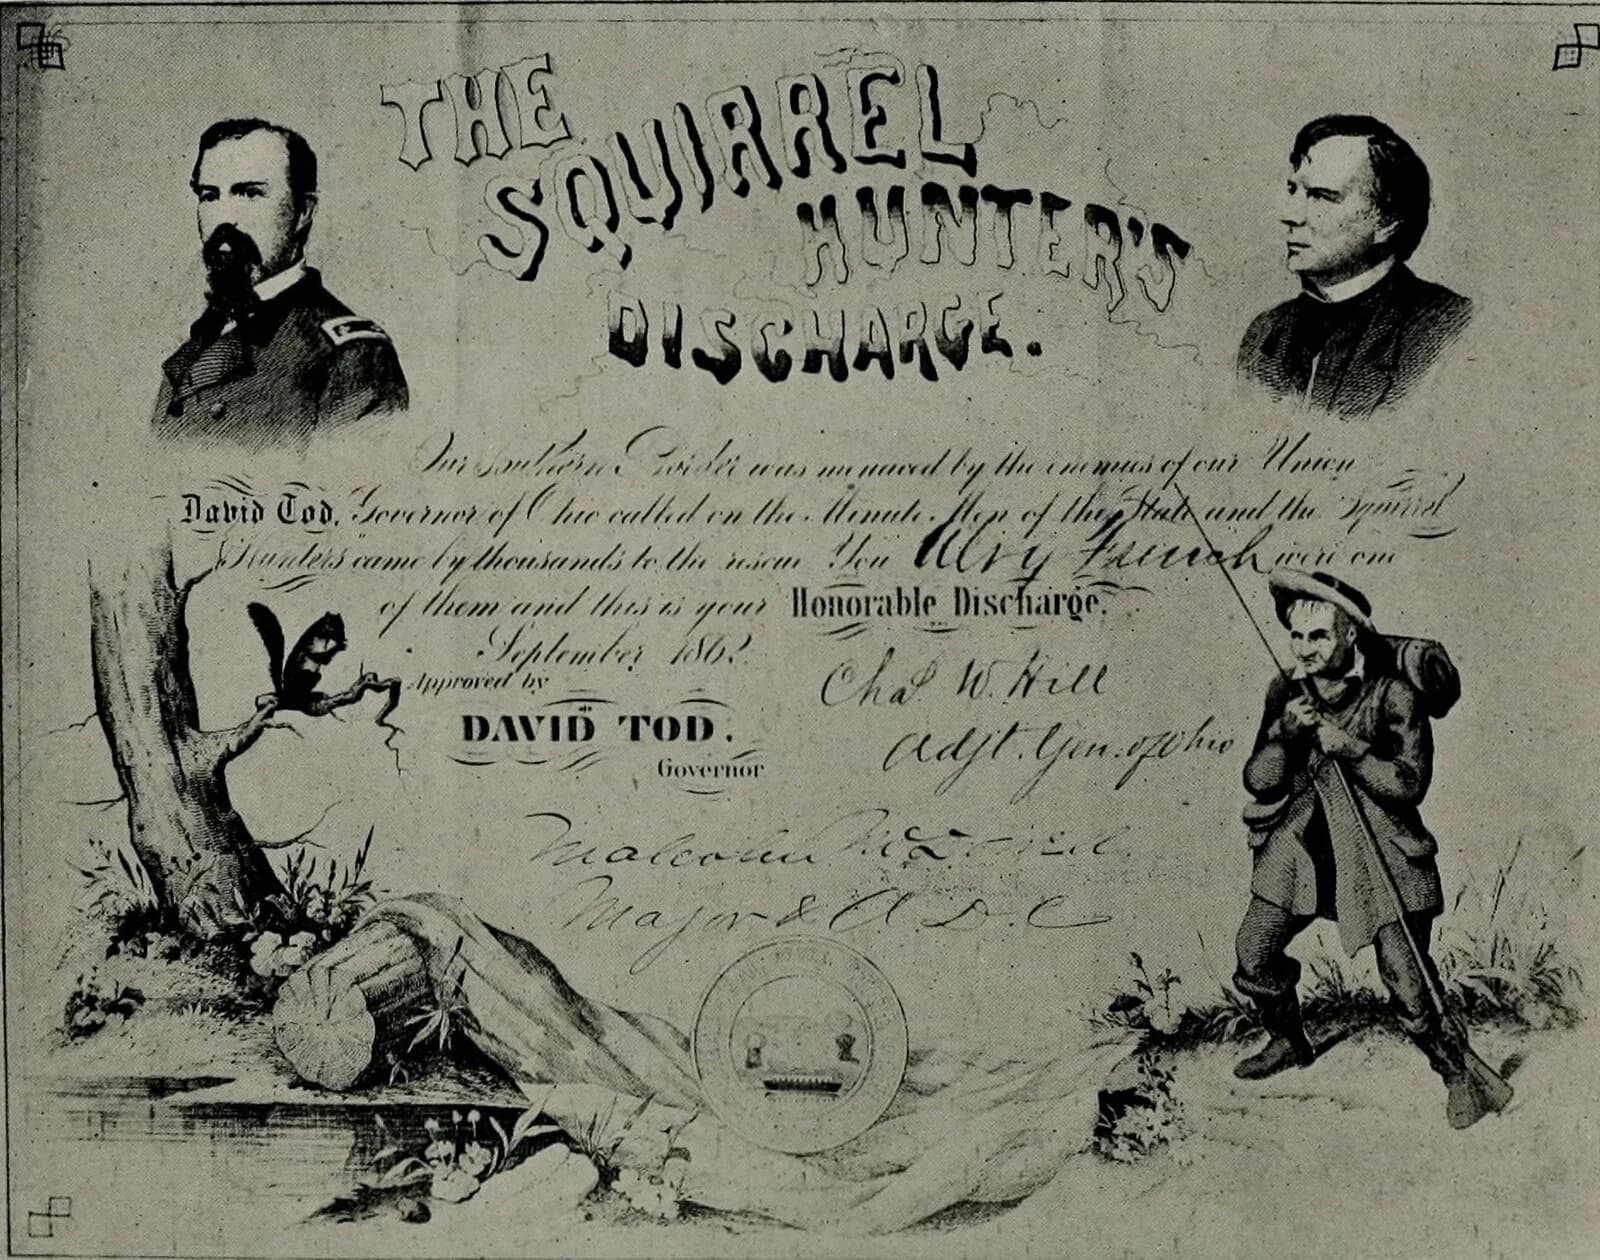 THE
SQUIRREL
HUNTER'S
DISCHARGE.
Our Southern Border was menaced by the enemies of our Union
David Tod, Governor of Ohio called on the Minute Men of the State and the "Squirrel
Hunters" came by thousands to the rescue You Alvy French were one
of them and this is your Honorable Discharge.
September 1862.
Approved by
DAVID TOD.
Governor
Chas W. Hill
Adjt. Gen. of Ohio
Malcolm
Major & A D. C